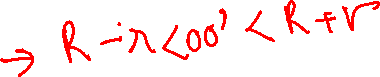 → R-r<OO'<R+r